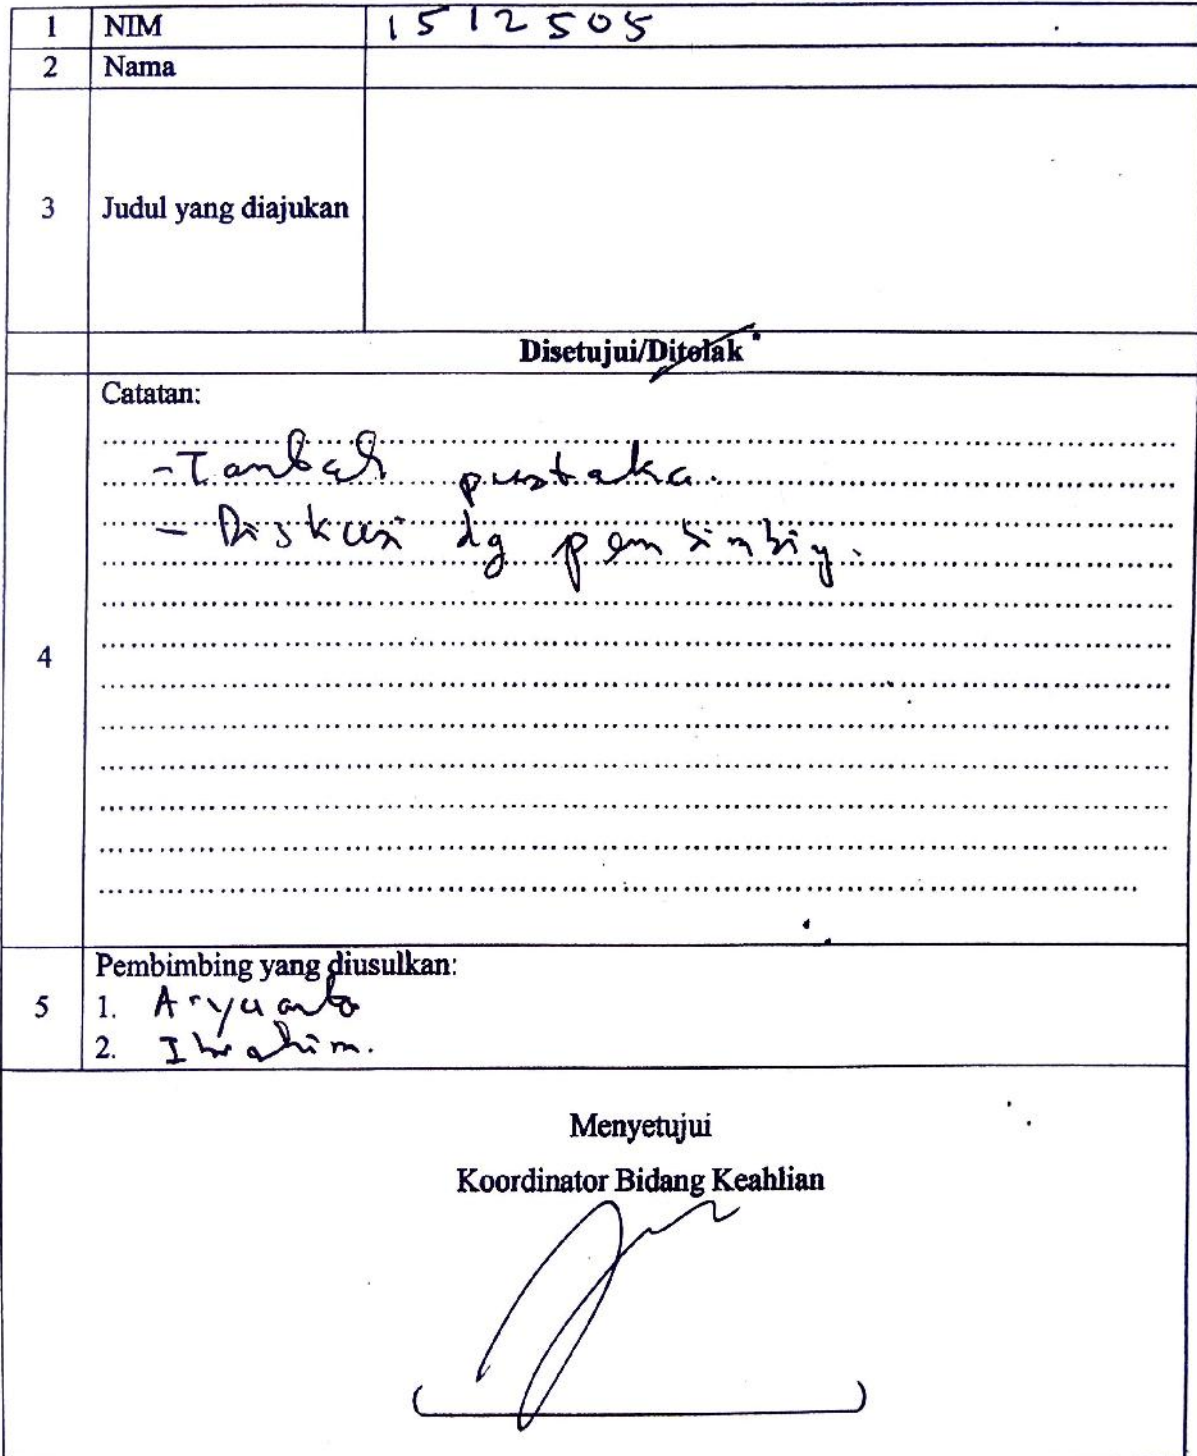 1 NIM 1512505
2 Nama
3 Judul yang diajukan
Disetujui/Ditolak
4 Catatan:
- Tambah pustaka.
- Diskusi dg pembimbing.
5 Pembimbing yang diusulkan:
1. Aryuanto
2. Ibrahim.
Menyetujui
Koordinator Bidang Keahlian
( )